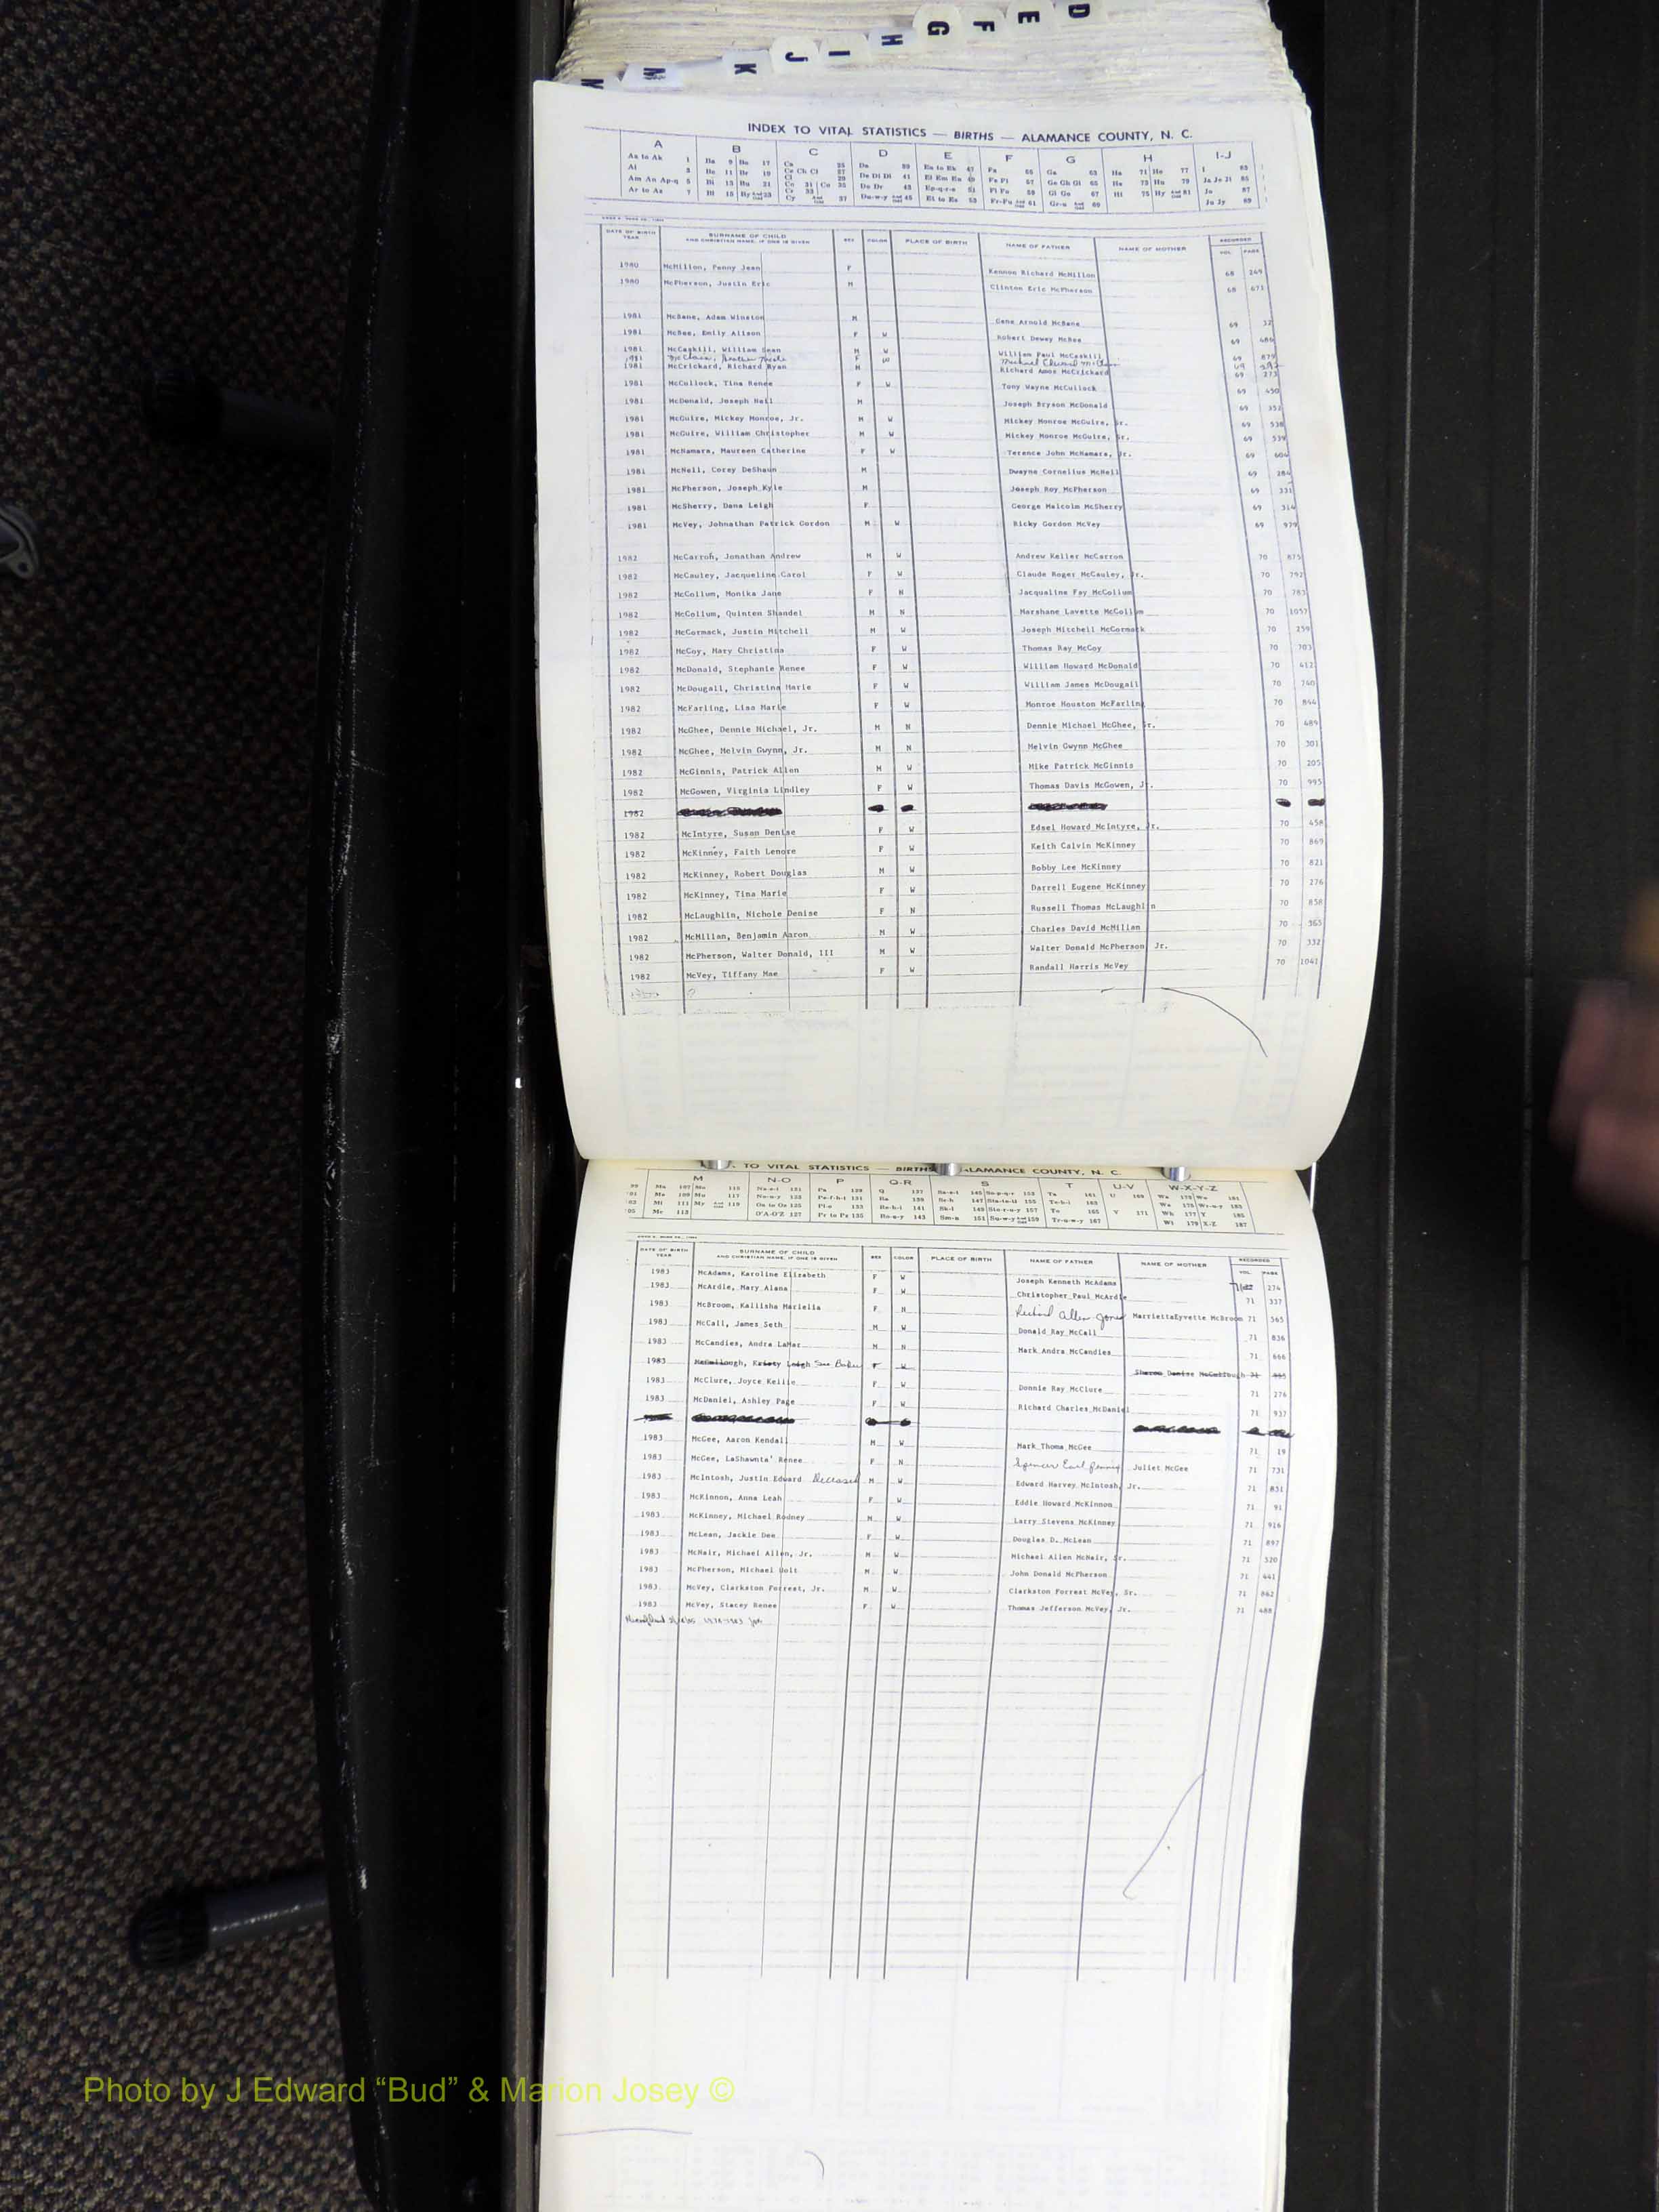 D
E
F
G
H
I
J
K
M
INDEX TO VITAL STATISTICS — BIRTHS — ALAMANCE COUNTY, N. C.
A B C D E F G H I-J
DATE OF BIRTH YEAR SURNAME OF CHILD AND CHRISTIAN NAME, IF ONE IS GIVEN SEX COLOR PLACE OF BIRTH NAME OF FATHER NAME OF MOTHER RECORDED VOL. PAGE
1980 McMilion, Penny Jean F Kennon Richard McMilion 68 249
1980 McPherson, Justin Eric M Clinton Eric McPherson 68 671
1981 McBane, Adam Winston M Gene Arnold McBane 69 32
1981 McBee, Emily Alison F W Robert Dewey McBee 69 486
1981 McCaskill, William Sean M W William Paul McCaskill 69 879
1981 F W 69
1981 McCrickard, Richard Ryan M Richard Amos McCrickard 69 273
1981 McCullock, Tina Renee F W Tony Wayne McCullock 69 450
1981 McDonald, Joseph Neil M Joseph Bryson McDonald 69 352
1981 McGuire, Mickey Monroe, Jr. M W Mickey Monroe McGuire, Sr. 69 538
1981 McGuire, William Christopher M W Mickey Monroe McGuire, Sr. 69 539
1981 McNamara, Maureen Catherine F W Terence John McNamara, Jr. 69 604
1981 McNeil, Corey DeShaun M Dwayne Cornelius McNeil 69 284
1981 McPherson, Joseph Kyle M Joseph Roy McPherson 69 331
1981 McSherry, Dana Leigh F George Malcolm McSherry 69 314
1981 McVey, Johnathan Patrick Gordon M W Ricky Gordon McVey 69 979
1982 McCarron, Jonathan Andrew M W Andrew Keller McCarron 70 875
1982 McCauley, Jacqueline Carol F W Claude Roger McCauley, Jr. 70 792
1982 McCollum, Monika Jane F N Jacqualine Fay McCollum 70 783
1982 McCollum, Quinten Shandel M N Marshane Lavette McCollum 70 1057
1982 McCormack, Justin Mitchell M W Joseph Mitchell McCormack 70 259
1982 McCoy, Mary Christina F W Thomas Ray McCoy 70 703
1982 McDonald, Stephanie Renee F W William Howard McDonald 70 412
1982 McDougall, Christina Marie F W William James McDougall 70 740
1982 McFarling, Lisa Marie F W Monroe Houston McFarling 70 844
1982 McGhee, Dennie Michael, Jr. M N Dennie Michael McGhee, Sr. 70 489
1982 McGhee, Melvin Gwynn, Jr. M N Melvin Gwynn McGhee 70 301
1982 McGinnis, Patrick Allen M W Mike Patrick McGinnis 70 205
1982 McGowen, Virginia Lindley F W Thomas Davis McGowen, Jr. 70 995
1982
1982 McIntyre, Susan Denise F W Edsel Howard McIntyre, Jr. 70 458
1982 McKinney, Faith Lenore F W Keith Calvin McKinney 70 869
1982 McKinney, Robert Douglas M W Bobby Lee McKinney 70 821
1982 McKinney, Tina Marie F W Darrell Eugene McKinney 70 276
1982 McLaughlin, Nichole Denise F N Russell Thomas McLaughlin 70 858
1982 McMillan, Benjamin Aaron M W Charles David McMillan 70 365
1982 McPherson, Walter Donald, III M W Walter Donald McPherson Jr. 70 332
1982 McVey, Tiffany Mae F W Randall Harris McVey 70 1041
TO VITAL STATISTICS — BIRTHS ALAMANCE COUNTY, N. C.
M N-O P Q-R S T U-V W-X-Y-Z
DATE OF BIRTH YEAR SURNAME OF CHILD AND CHRISTIAN NAME, IF ONE IS GIVEN SEX COLOR PLACE OF BIRTH NAME OF FATHER NAME OF MOTHER RECORDED VOL. PAGE
1983 McAdams, Karoline Elizabeth F W Joseph Kenneth McAdams 274
1983 McArdle, Mary Alana F W Christopher Paul McArdle 71 337
1983 McBroom, Kallisha Marielia F N Richard Allen Jones MarriettaEyvette McBroom 71 565
1983 McCall, James Seth M W Donald Ray McCall 71 836
1983 McCandies, Andra LaMar M N Mark Andra McCandies 71 666
1983 McCullough, Kristy Leigh See Baker F W Sharon Denise McCullough 71
1983 McClure, Joyce Kellie F W Donnie Ray McClure 71 276
1983 McDaniel, Ashley Page F W Richard Charles McDaniel 71 937
1983 McGee, Aaron Kendall M W Mark Thoma McGee 71 19
1983 McGee, LaShawnta' Renee F N Spencer Earl Juliet McGee 71 731
1983 McIntosh, Justin Edward Deceased M W Edward Harvey McIntosh, Jr. 71 831
1983 McKinnon, Anna Leah F W Eddie Howard McKinnon 71 91
1983 McKinney, Michael Rodney M W Larry Stevens McKinney 71 916
1983 McLean, Jackie Dee F W Douglas D. McLean 71 897
1983 McNair, Michael Allen, Jr. M W Michael Allen McNair, Sr. 71 320
1983 McPherson, Michael Holt M W John Donald McPherson 71 441
1983 McVey, Clarkston Forrest, Jr. M W Clarkston Forrest McVey, Sr. 71 862
1983 McVey, Stacey Renee F W Thomas Jefferson McVey, Jr. 71 488
Photo by J Edward “Bud” & Marion Josey ©